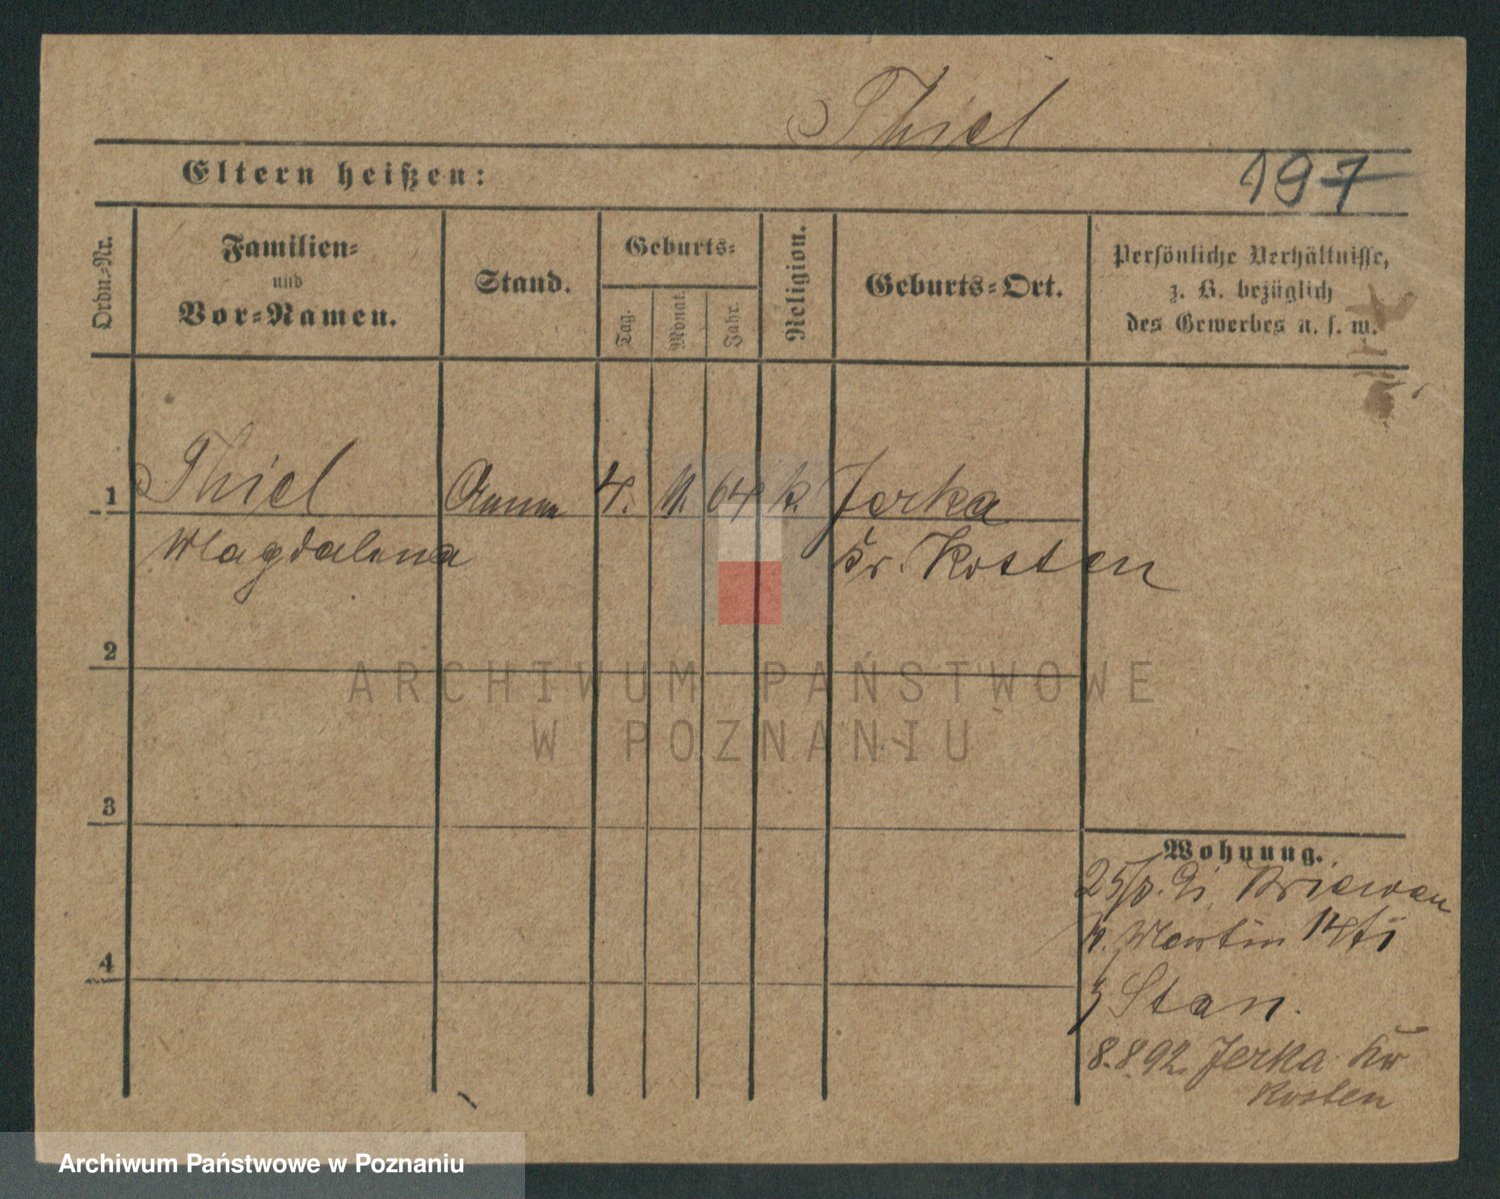 Thiel
Eltern heißen:
197
Ordn.-Nr.
Familien-
und
Vor-Namen.
Stand.
Geburts-
Tag.
Monat.
Jahr.
Religion.
Geburts-Ort.
Persönliche Verhältnisse,
z. B. bezüglich
des Gewerbes u. s. w.
1 Thiel Amme 4. 11. 64 k. Jerka
Magdalena Kr. Kosten
2
3
4
Wohnung.
Kriewen
Martin 14
Stan.
8.8.92. Jerka Kr
Kosten
ARCHIWUM PAŃSTWOWE
W POZNANIU
Archiwum Państwowe w Poznaniu